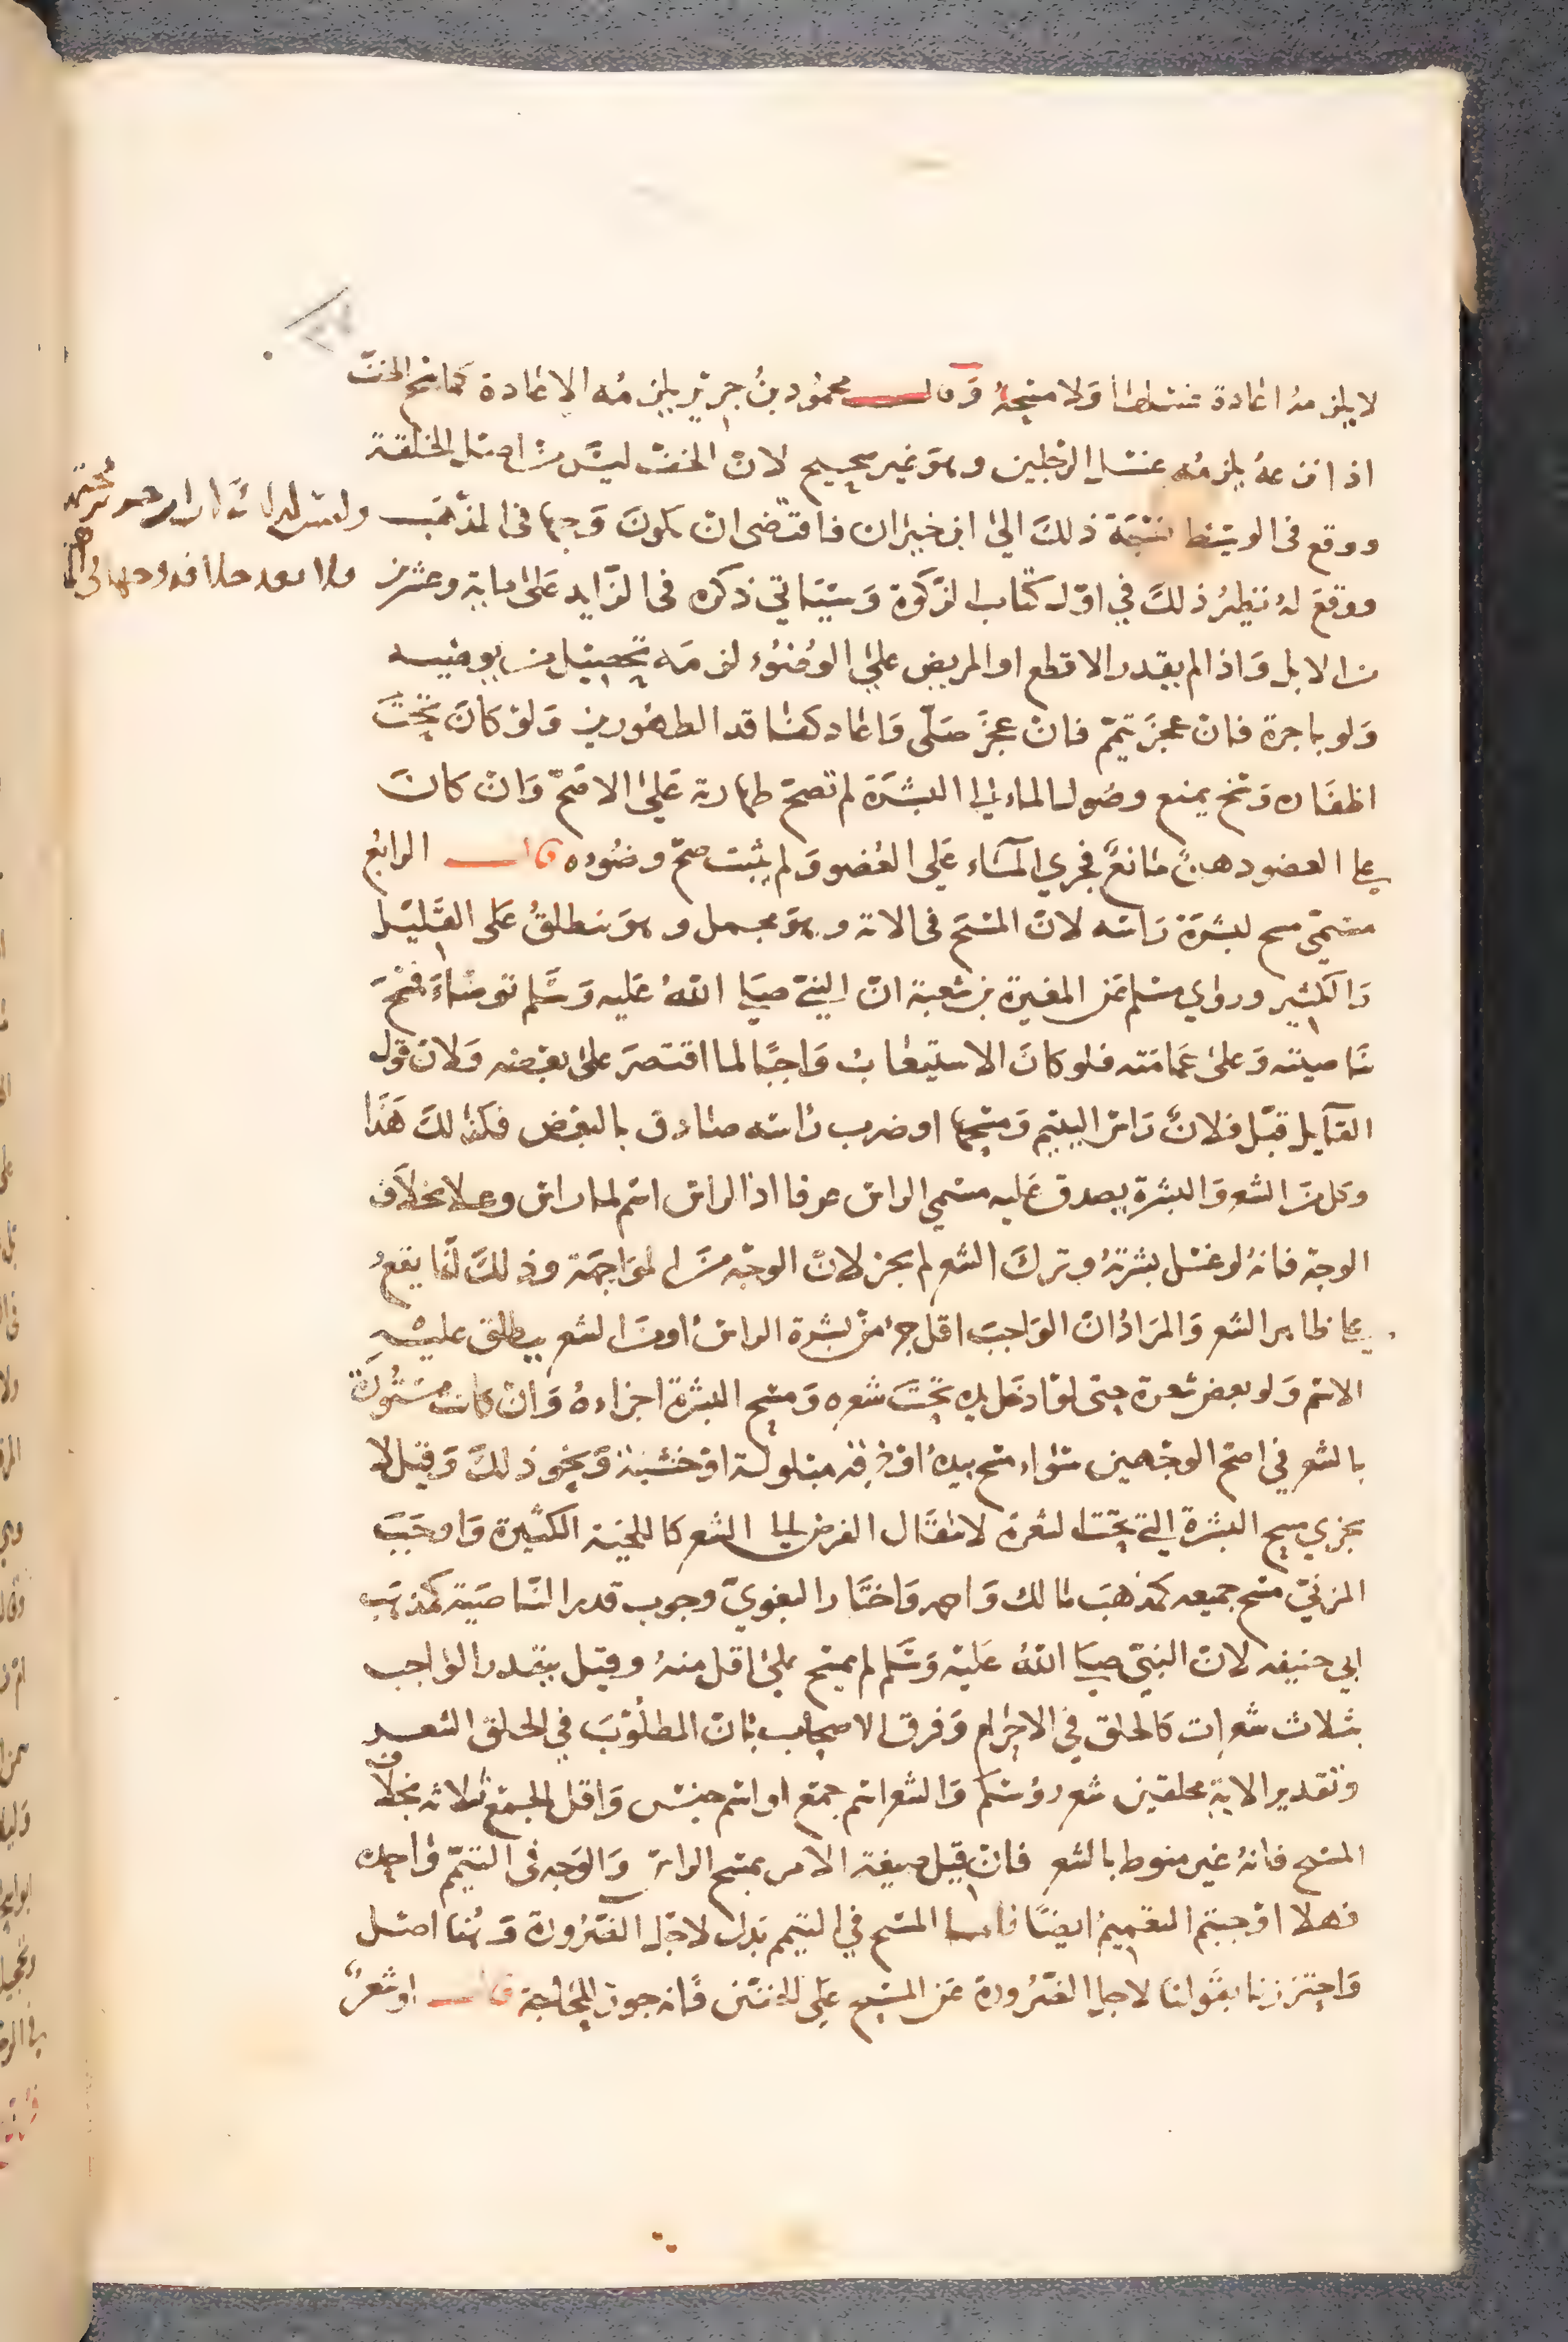 لا يلزمه اعادة غسلها ولا مسحه وقال محمود بن جرير يلزمه الاعادة كماسح الخف
اذا نزعه يلزمه غسل الرجلين وهو غير صحيح لان الخف ليس من اصل الخلقة
ووقع في الوسيط نسبة ذلك الى ابن خيران فاقتضى ان يكون وجها في المذهب
ووقع له نظير ذلك في اول كتاب الزكوة وسياتي ذكره في الزايد على ماية وعشرين
من الابل واذا لم يقدر الاقطع او المريض على الوضوء لزمه تحصيل من يوضيه
ولو باجرة فان عجز تيمم فان عجز صلى واعاد كفاقد الطهورين ولو كان تحت
اظفاره وسخ يمنع وصول الماء الى البشرة لم تصح طهارته على الاصح وان كان
على العضو دهن مائع فجري الماء على العضو ولم يثبت صح وضوءه قال الرابع
مسمى مسح لبشرة راسه لان المسح في الاية وهو مجمل وهو ينطلق على القليل
والكثير وروي مسلم عن المغيرة بن شعبة ان النبي صلى الله عليه وسلم توضا فمسح
ناصيته وعلى عمامته فلو كان الاستيعاب واجبا لما اقتصر على بعضه ولان قول
القايل قبل فلان راس اليتيم ومسحها او ضرب راسه صادق بالبعض فكذلك هذا
وكل من الشعر والبشرة يصدق عليه مسمى الراس عرفا اذ الراس اسم لما راس وعلا بخلاف
الوجه فانه لو غسل بشرته وترك الشعر لم يجز لان الوجه من المواجهة وذلك انما يقع
على ظاهر الشعر والمراد ان الواجب اقل جزء من بشرة الراس او من الشعر يطلق عليه
الاسم ولو بعض شعرة حتى لو ادخل يده تحت شعره ومسح البشرة اجزاءه وان كانت مستورة
بالشعر في اصح الوجهين سواء مسح بيده او خرقة مبلولة او خشبة ونحو ذلك وقيل لا
يجزي مسح البشرة التي تحت الشعرة لانتقال الفرض الى الشعر كاللحية الكثيرة واوجب
المزني مسح جميعه كمذهب مالك واحمد واختار البغوي وجوب قدر الناصية كمذهب
ابي حنيفه لان النبي صلى الله عليه وسلم لم يمسح على اقل منه وقيل يتقدر الواجب
بثلاث شعرات كالحلق في الاحرام وفرق الاصحاب بان المطلوب في الحلق الشعر
وتقدير الاية محلقين شعر رؤسكم والشعر اسم جمع او اسم جنس واقل الجمع ثلاثه بخلاف
المسح فانه غير منوط بالشعر فان قيل صيغة الامر بمسح الراس والوجه في التيمم واحدة
فهلا اوجبتم التعميم ايضا قلنا المسح في التيمم بدل لاجل الضرورة وهنا اصل
واحترزنا بقولنا لاجل الضرورة عن المسح على الخفين فانه جوز للحاجة قال او شعر